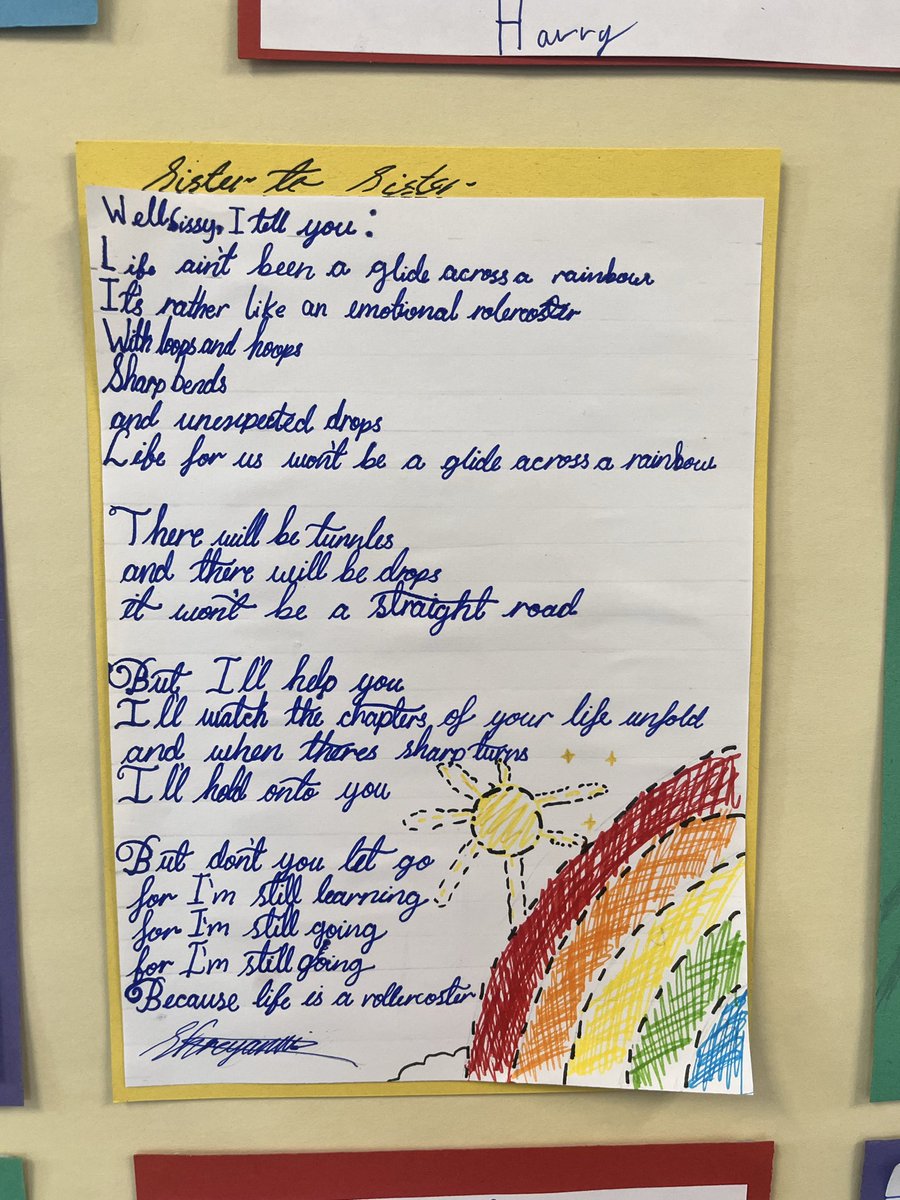 Harry
Sister to Sister
Well Sissy, I tell you:
Life ain't been a glide across a rainbow
It's rather like an emotional rolercoster
With loops and hoops
Sharp bends
and unexpected drops
Life for us won't be a glide across a rainbow
There will be tunnles
and there will be drops
it won't be a straight road
But I'll help you
I'll watch the chapters of your life unfold
and when theres sharp turns
I'll hold onto you
But don't you let go
for I'm still learning
for I'm still going
for I'm still going
Because life is a rollercoster